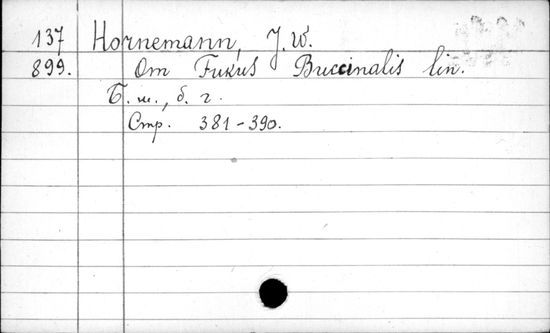 137 Hornemann, J. W.
899. Om Fukus Buccinalis lin.
Б. м., б. г.
Стр. 381-390.